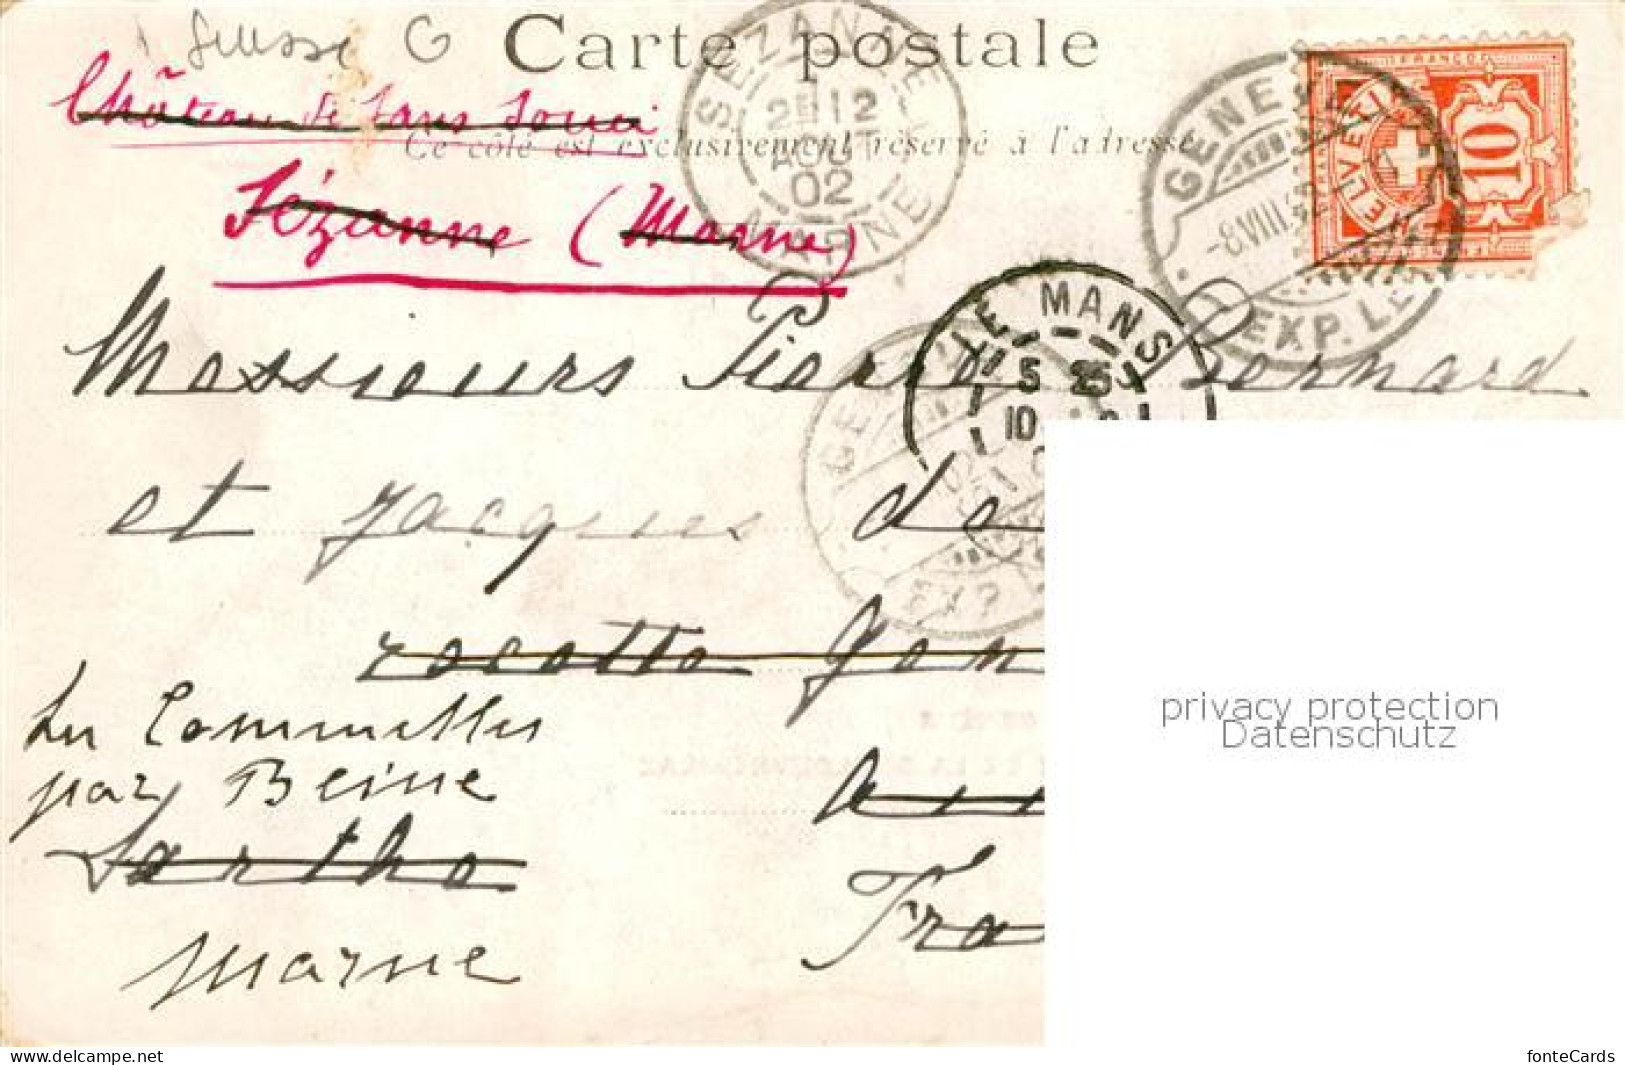 Suisse G
Carte postale
Château de Sans Souci
Ce côté est exclusivement réservé à l'adresse
Sézanne (Marne)
SEZANNE
2E 12
AOUT
02
MARNE
GENEVE
-8.VIII.02
EXP. LET
FRANCO
HELVETIA
10
LE MANS
5 25
10
Messieurs Pierre Bernard
et Jacques de
EXP
Les Commelles
par Beine
Sarthe
Marne
Fra
privacy protection
Datenschutz
www.delcampe.net
fonteCards